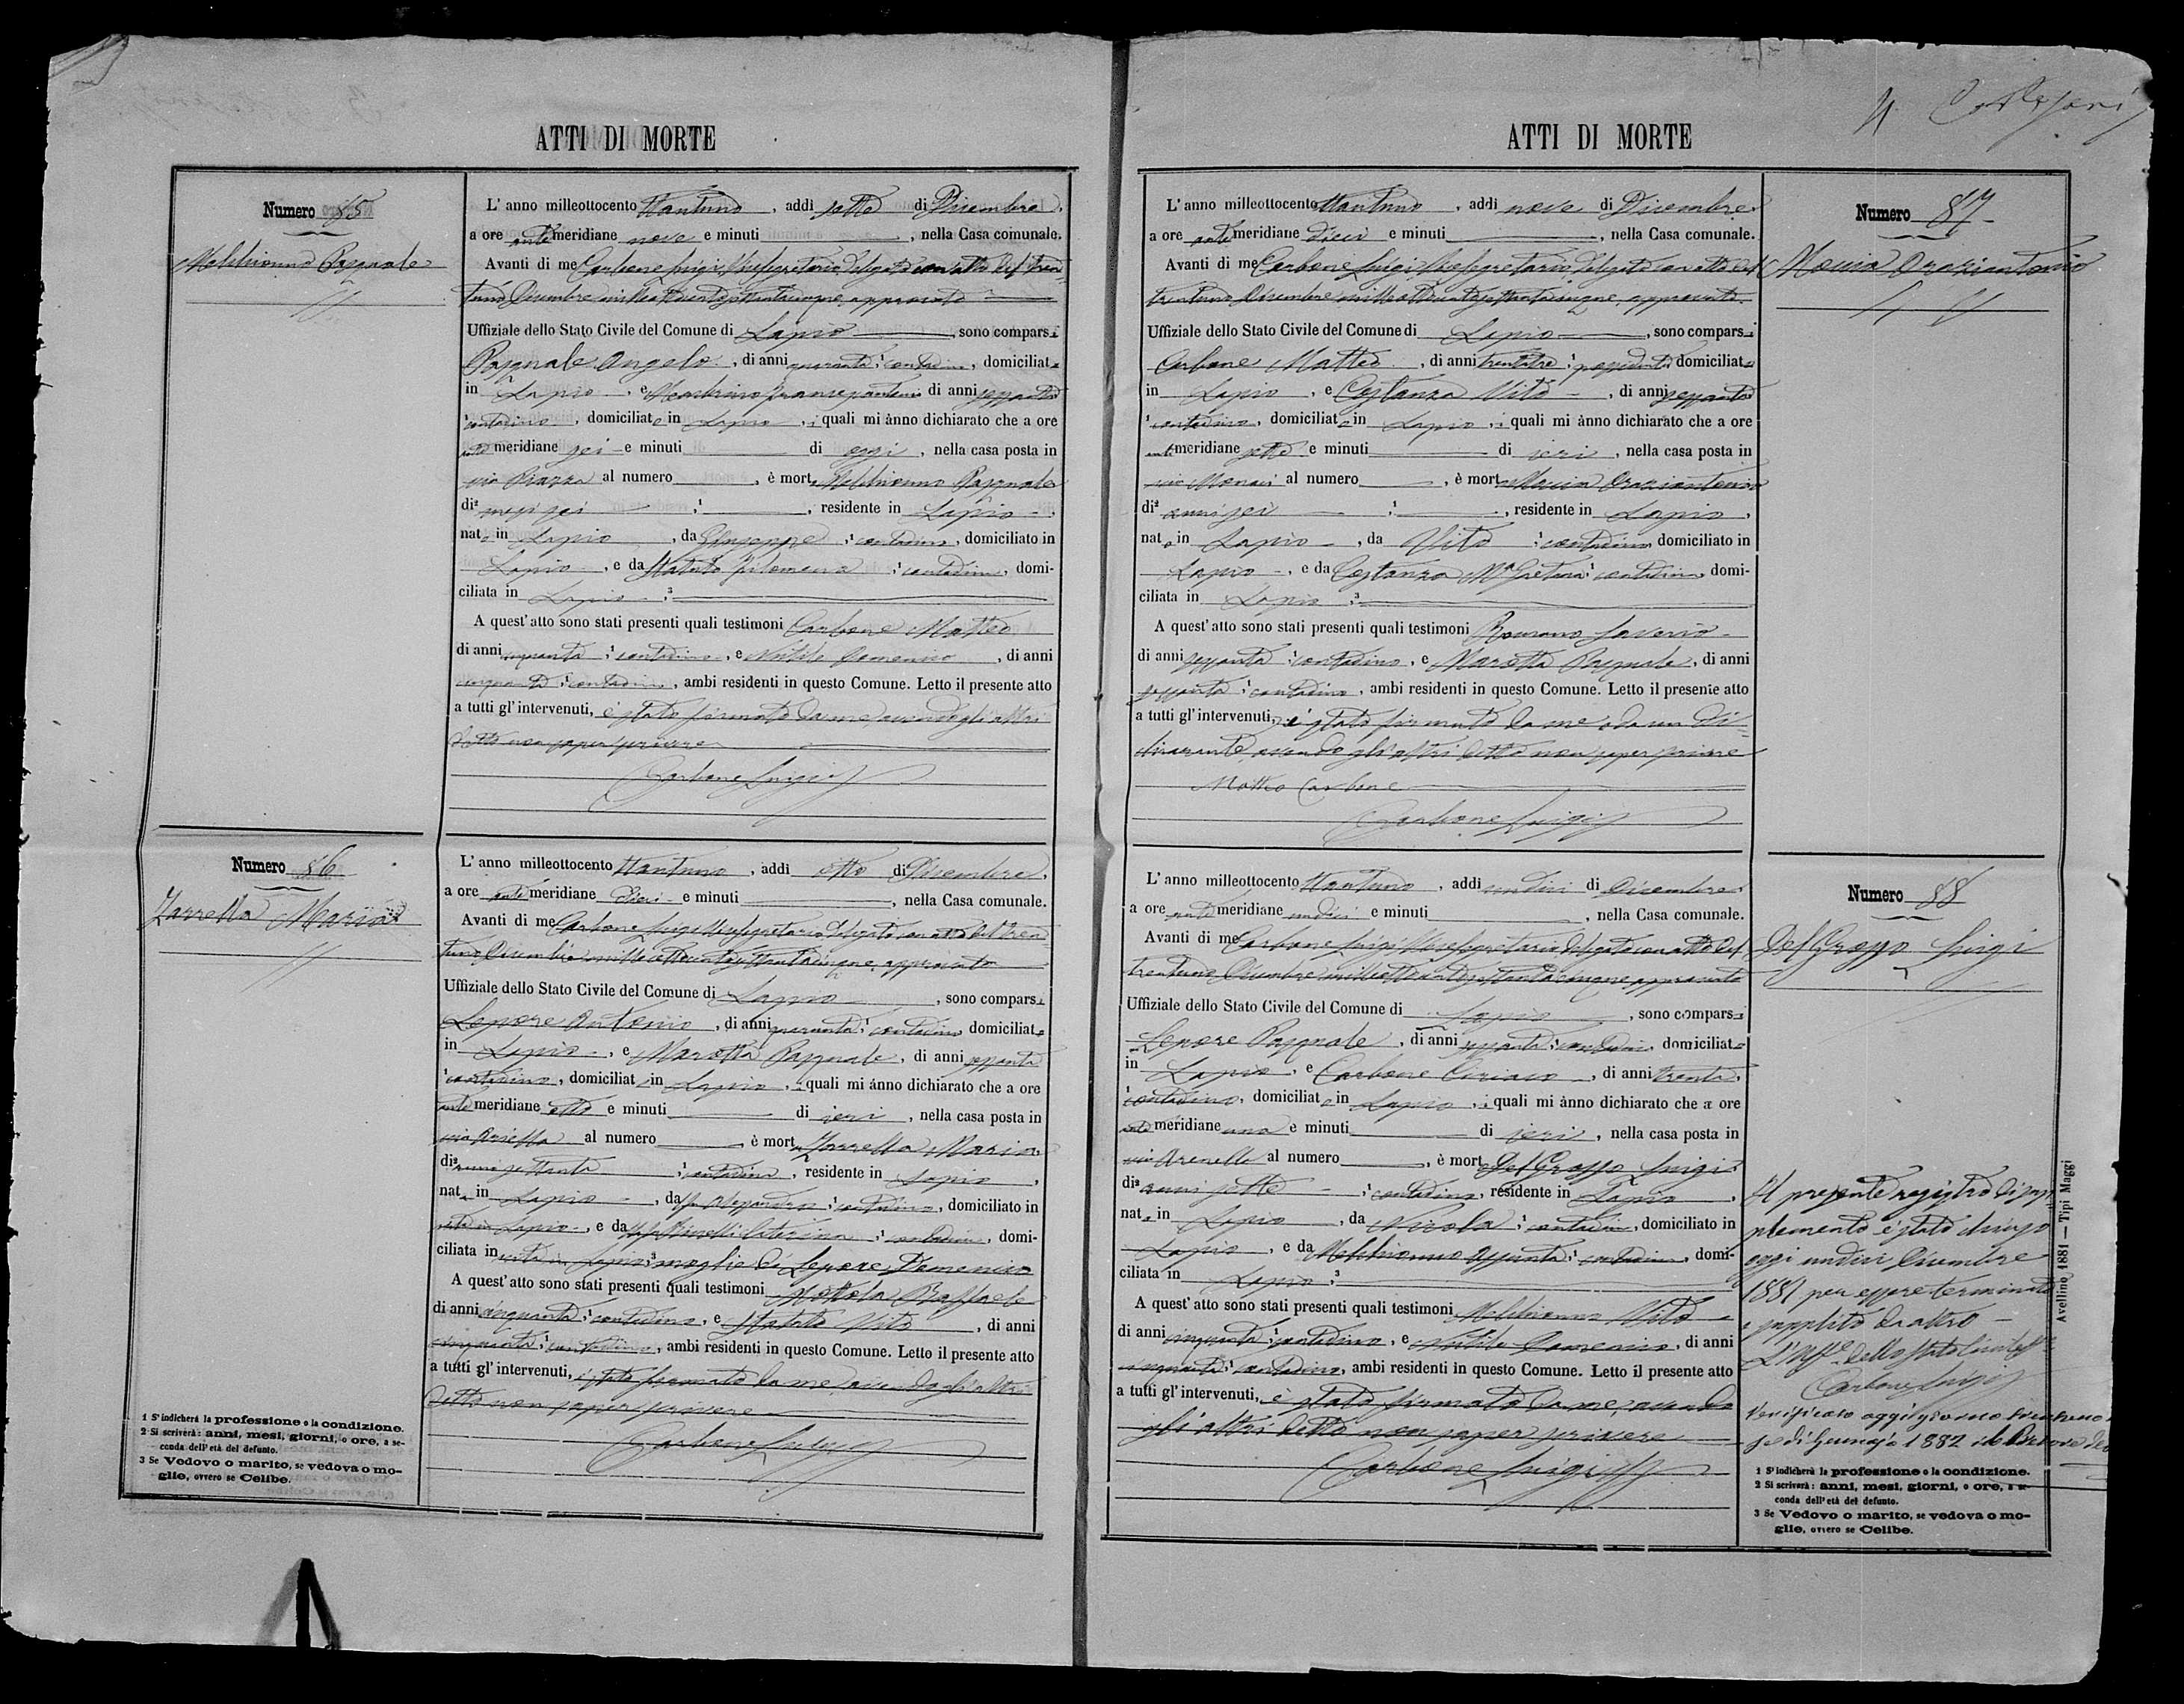 ATTI DI MORTE
Numero 85
Melchionno Pasquale
L' anno milleottocento ttantuno, addì sette di Dicembre,
a ore ante meridiane nove e minuti, nella Casa comunale.
Avanti di me Carbone Luigi Vicesegretario delegato con atto del tren
tuno Dicembre milleottocentosettantacinque, approvato
Uffiziale dello Stato Civile del Comune di Lapio, sono comparsi
Pasquale Angelo, di anni quaranta, contadino, domiciliato
in Lapio, e di anni sessanta
contadino, domiciliato in Lapio, i quali mi ànno dichiarato che a ore
ante meridiane sei e minuti di oggi, nella casa posta in
via Piazza al numero, è morto Melchionno Pasquale
di² mesi sei ;¹, residente in Lapio,
nato in Lapio, da Giuseppe, ¹ contadino, domiciliato in
Lapio, e da Statuto Filomena, ¹ contadina, domi-
ciliata in Lapio ;³
A quest' atto sono stati presenti quali testimoni Carbone Matteo
di anni cinquanta, ¹ contadino, e Nutile Domenico, di anni
cinquanta, ¹ contadino, ambi residenti in questo Comune. Letto il presente atto
a tutti gl' intervenuti, è stato firmato da me, avendo gli altri
detto non saper scrivere
Carbone Luigi
Numero 86
Zarrella Maria
L' anno milleottocento ttantuno, addì otto di Dicembre,
a ore ante meridiane dieci e minuti, nella Casa comunale.
Avanti di me Carbone Luigi Vicesegretario delegato con atto del tren
tuno Dicembre milleottocentosettantacinque, approvato
Uffiziale dello Stato Civile del Comune di Lapio, sono comparsi
Lepore Antonio, di anni quaranta, ¹ contadino, domiciliato
in Lapio, e Marotta Pasquale, di anni sessanta
¹ contadino, domiciliato in Lapio, i quali mi ànno dichiarato che a ore
ante meridiane otto e minuti di ieri, nella casa posta in
via Arielle al numero, è morta Zarrella Maria
di² anni settanta ;¹ contadina, residente in Lapio,
nata in Lapio, da fu Alessandro, ¹ contadino, domiciliato in
vita in Lapio, e da fu Caterina, ¹ contadina, domi-
ciliata in vita in Lapio ;³ moglie di Lepore Domenico
A quest' atto sono stati presenti quali testimoni Mottola Raffaele
di anni cinquanta, ¹ contadino, e Statuto Vito, di anni
cinquanta, ¹ contadino, ambi residenti in questo Comune. Letto il presente atto
a tutti gl' intervenuti, è stato firmato da me, avendo gli altri
detto non saper scrivere
Carbone Luigi
1 S' indicherà la professione o la condizione.
2 Si scriverà: anni, mesi, giorni, o ore, a se-
conda dell' età del defunto.
3 Se Vedovo o marito, se vedova o mo-
glie, ovvero se Celibe.
ATTI DI MORTE
Numero 87
Moccia Oraziantonio
L' anno milleottocento ttantuno, addì nove di Dicembre,
a ore ante meridiane dieci e minuti, nella Casa comunale.
Avanti di me Carbone Luigi Vicesegretario delegato con atto del
trentuno Dicembre milleottocentosettantacinque, approvato
Uffiziale dello Stato Civile del Comune di Lapio, sono comparsi
Carbone Matteo, di anni trentatre, ¹ possidente, domiciliato
in Lapio, e Costanza Vito, di anni sessanta
¹ contadino, domiciliato in Lapio, i quali mi ànno dichiarato che a ore
anti meridiane sette e minuti di ieri, nella casa posta in
via Monaci al numero, è morto Moccia Oraziantonio
di² anni sei ;¹, residente in Lapio,
nato in Lapio, da Vito, ¹ contadino, domiciliato in
Lapio, e da Costanza Mª Gaetana, ¹ contadina, domi-
ciliata in Lapio ;³
A quest' atto sono stati presenti quali testimoni Romano Saverio
di anni sessanta, ¹ contadino, e Marotta Pasquale, di anni
sessanta, ¹ contadino, ambi residenti in questo Comune. Letto il presente atto
a tutti gl' intervenuti, è stato firmato da me e da un di-
chiarante, avendo gli altri detto non saper scrivere
Matteo Carbone
Carbone Luigi
Numero 88
Del Grosso Luigi
L' anno milleottocento ttantuno, addì undici di Dicembre
a ore ante meridiane undici e minuti, nella Casa comunale.
Avanti di me Carbone Luigi Vicesegretario delegato con atto del
trentuno Dicembre milleottocentosettantacinque, approvato
Uffiziale dello Stato Civile del Comune di Lapio, sono comparsi
Lepore Pasquale, di anni sessanta, ¹ contadino, domiciliato
in Lapio, e Carbone Ciriaco, di anni trenta,
¹ contadino, domiciliato in Lapio, i quali mi ànno dichiarato che a ore
ante meridiane una e minuti di ieri, nella casa posta in
via Arenelle al numero, è morto Del Grosso Luigi
di² anni sette ;¹ contadino, residente in Lapio,
nato in Lapio, da Nicola, ¹ contadino, domiciliato in
Lapio, e da Melchionno Assunta, ¹ contadina, domi-
ciliata in Lapio ;³
A quest' atto sono stati presenti quali testimoni Melchionno Vito
di anni cinquanta, ¹ contadino, e Nutile Domenico, di anni
cinquanta, ¹ contadino, ambi residenti in questo Comune. Letto il presente atto
a tutti gl' intervenuti, è stato firmato da me, avendo
gli altri detto non saper scrivere
Carbone Luigi
Il presente registro di sup-
plemento è stato chiuso
oggi undici Dicembre
1881 per essere terminato
e supplito da altro
L'Uff.le dello Stato Civile
Carbone Luigi
Verificato oggi giorno
di Gennajo 1882 il Pretore
1 S' indicherà la professione o la condizione.
2 Si scriverà: anni, mesi, giorni, o ore, a se-
conda dell' età del defunto.
3 Se Vedovo o marito, se vedova o mo-
glie, ovvero se Celibe.
Avellino 1881 — Tipi Maggi